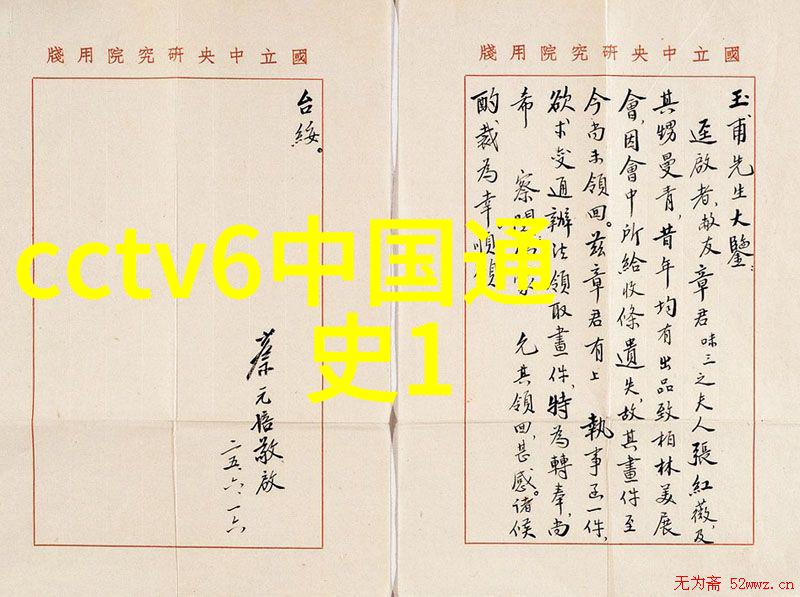 國立中央研究院用牋
玉甫先生大鑒:
逕啟者,敝友章君味三之夫人張紅薇,及
其甥曼青,昔年均有出品致柏林美展
會,因會中所給收條遺失,故其畫件至
今尚未領回。茲章君有上 執事函一件,
欲求變通辦法領取畫件,特為轉奉,尚
希 察 允其領回,甚感。諸候
酌裁為幸順頌
國立中央研究院用牋
台綏。
蔡元培敬啟
二五、六、一六
cctv6中国通
史1
无为斋 52wwz.cn